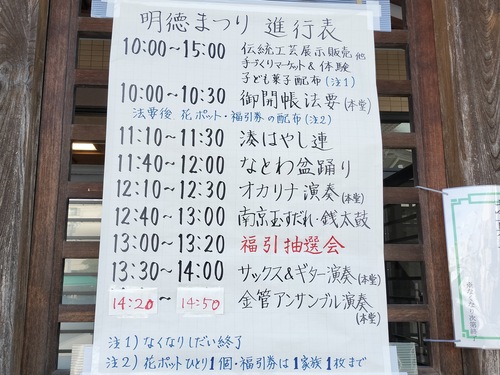 明徳まつり 進行表
10:00〜15:00 伝統工芸展示販売 他
手づくりマーケット&体験
子ども菓子配布(注1)
10:00〜10:30 御開帳法要(本堂)
法要後 花ポット・福引券の配布(注2)
11:10〜11:30 湊はやし連
11:40〜12:00 なとわ盆踊り
12:10〜12:30 オカリナ演奏(本堂)
12:40〜13:00 南京玉すだれ・銭太鼓
13:00〜13:20 福引抽選会
13:30〜14:00 サックス&ギター演奏(本堂)
14:20〜14:50 金管アンサンブル演奏
(本堂)
注1)なくなりしだい終了
注2)花ポットひとり1個・福引券は1家族1枚まで